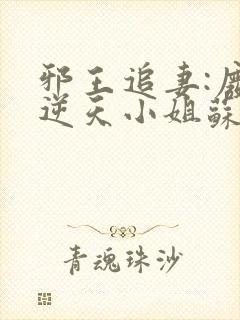 邪王追妻:
逆天小姐蘇
青魂珠沙